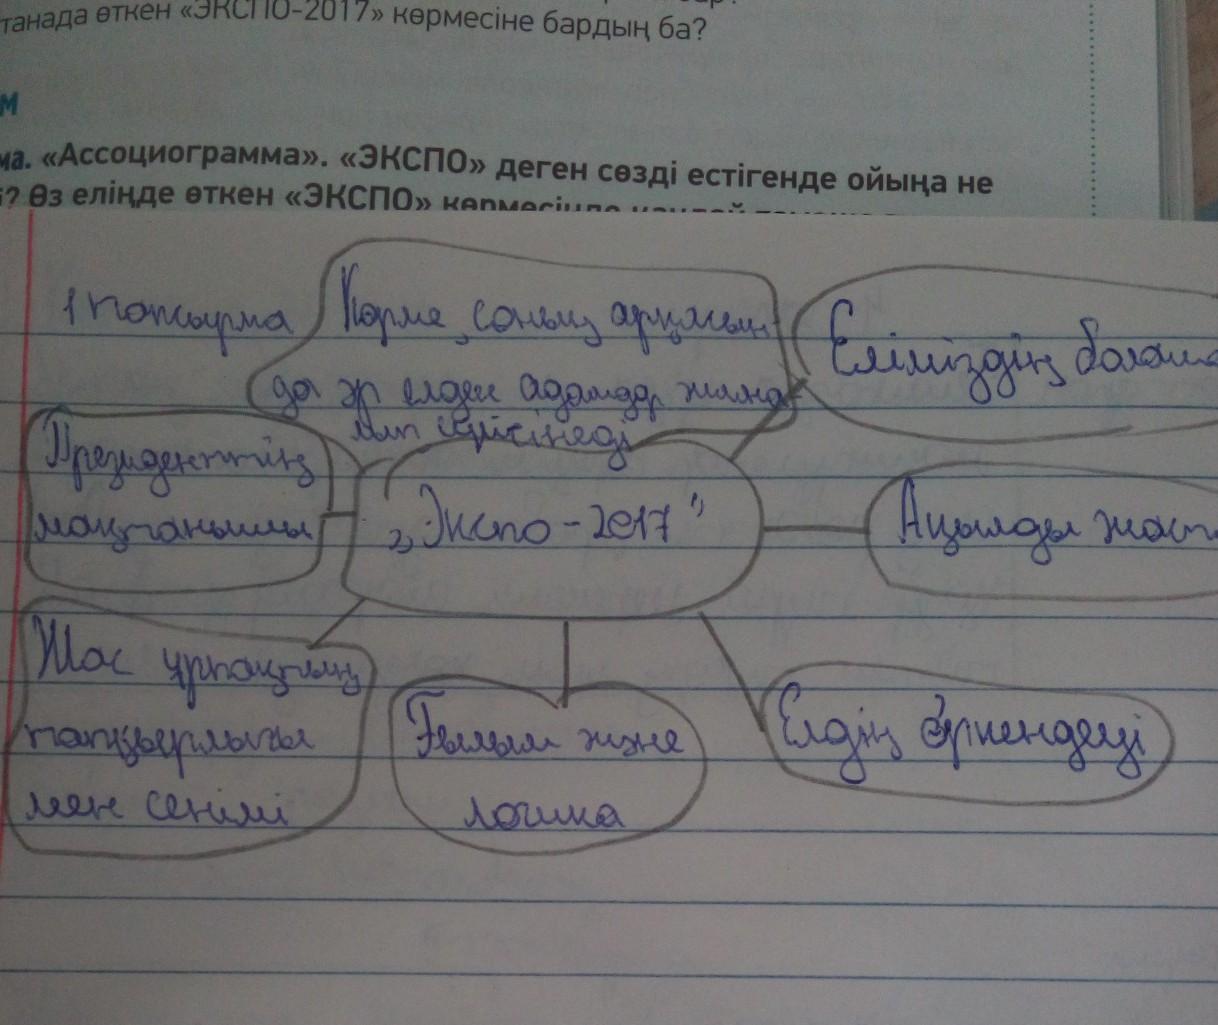 танада өткен «ЭКСПО-2017» көрмесіне бардың ба?
м
ма. «Ассоциограмма». «ЭКСПО» деген сөзді естігенде ойыңа не
? Өз еліңде өткен «ЭКСПО» көрмесінде қандай
1 тапсырма
Көрме, соның арқасын
да әр елден адамдар жина
лып
Еліміздің болаша
Президенттің
мақтанышы
„Экспо-2017"
Ақылды жаст
Жас ұрпақтың
тапқырлығы
мен сенімі
Ғылым және
логика
Елдің өркендеуі